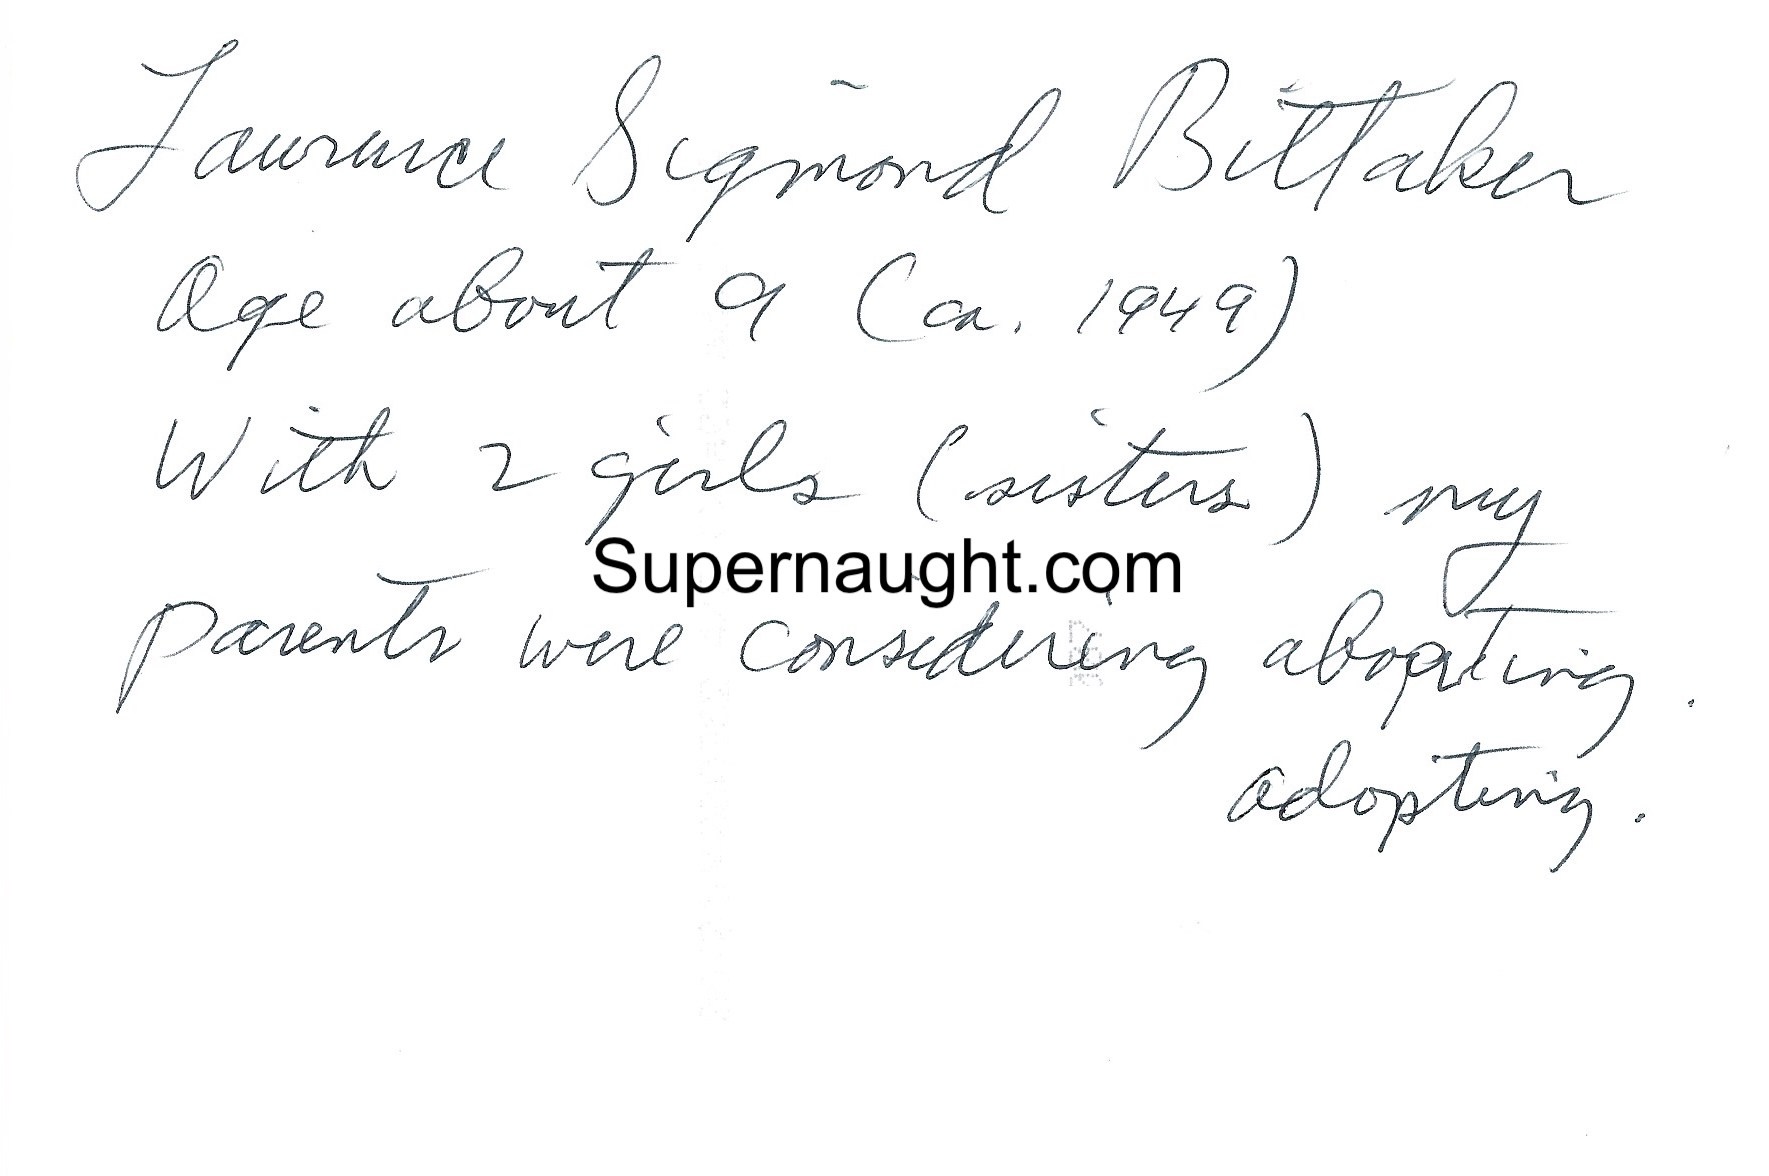 Lawrence Sigmond Bittaker
Age about 9 (ca. 1949)
With 2 girls (sisters) my
Supernaught.com
parents were considering abopting.
adopting.